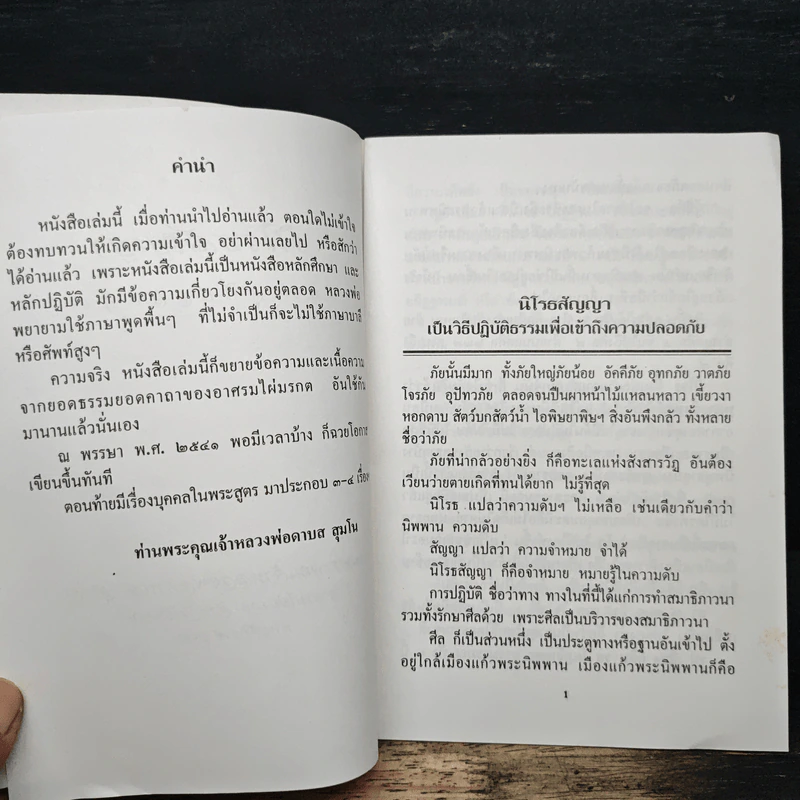 คำนำ
หนังสือเล่มนี้ เมื่อท่านนำไปอ่านแล้ว ตอนใดไม่เข้าใจ
ต้องทบทวนให้เกิดความเข้าใจ อย่าผ่านเลยไป หรือสักว่า
ได้อ่านแล้ว เพราะหนังสือเล่มนี้เป็นหนังสือหลักศึกษา และ
หลักปฏิบัติ มักมีข้อความเกี่ยวโยงกันอยู่ตลอด หลวงพ่อ
พยายามใช้ภาษาพูดพื้นๆ ที่ไม่จำเป็นก็จะไม่ใช้ภาษาบาลี
หรือศัพท์สูงๆ
ความจริง หนังสือเล่มนี้ก็ขยายข้อความและเนื้อความ
จากยอดธรรมยอดคาถาของอาศรมไผ่มรกต อันใช้กัน
มานานแล้วนั่นเอง
ณ พรรษา พ.ศ. ๒๕๔๑ พอมีเวลาบ้าง ก็ฉวยโอกาส
เขียนขึ้นทันที
ตอนท้ายมีเรื่องบุคคลในพระสูตร มาประกอบ ๓-๔ เรื่อง
ท่านพระคุณเจ้าหลวงพ่อดาบส สุมโน
นิโรธสัญญา
เป็นวิธีปฏิบัติธรรมเพื่อเข้าถึงความปลอดภัย
ภัยนั้นมีมาก ทั้งภัยใหญ่ภัยน้อย อัคคีภัย อุทกภัย วาตภัย
โจรภัย อุปัทวภัย ตลอดจนปืนผาหน้าไม้แหลนหลาว เขี้ยวงา
หอกดาบ สัตว์บกสัตว์น้ำ ไอพิษยาพิษฯ สิ่งอันพึงกลัว ทั้งหลาย
ชื่อว่าภัย
ภัยที่น่ากลัวอย่างยิ่ง ก็คือทะเลแห่งสังสารวัฏ อันต้อง
เวียนว่ายตายเกิดที่ทนได้ยาก ไม่รู้ที่สุด
นิโรธ แปลว่าความดับฯ ไม่เหลือ เช่นเดียวกับคำว่า
นิพพาน ความดับ
สัญญา แปลว่า ความจำหมาย จำได้
นิโรธสัญญา ก็คือจำหมาย หมายรู้ในความดับ
การปฏิบัติ ชื่อว่าทาง ทางในที่นี้ได้แก่การทำสมาธิภาวนา
รวมทั้งรักษาศีลด้วย เพราะศีลเป็นบริวารของสมาธิภาวนา
ศีล ก็เป็นส่วนหนึ่ง เป็นประตูทางหรือฐานอันเข้าไป ตั้ง
อยู่ใกล้เมืองแก้วพระนิพพาน เมืองแก้วพระนิพพานก็คือ
1